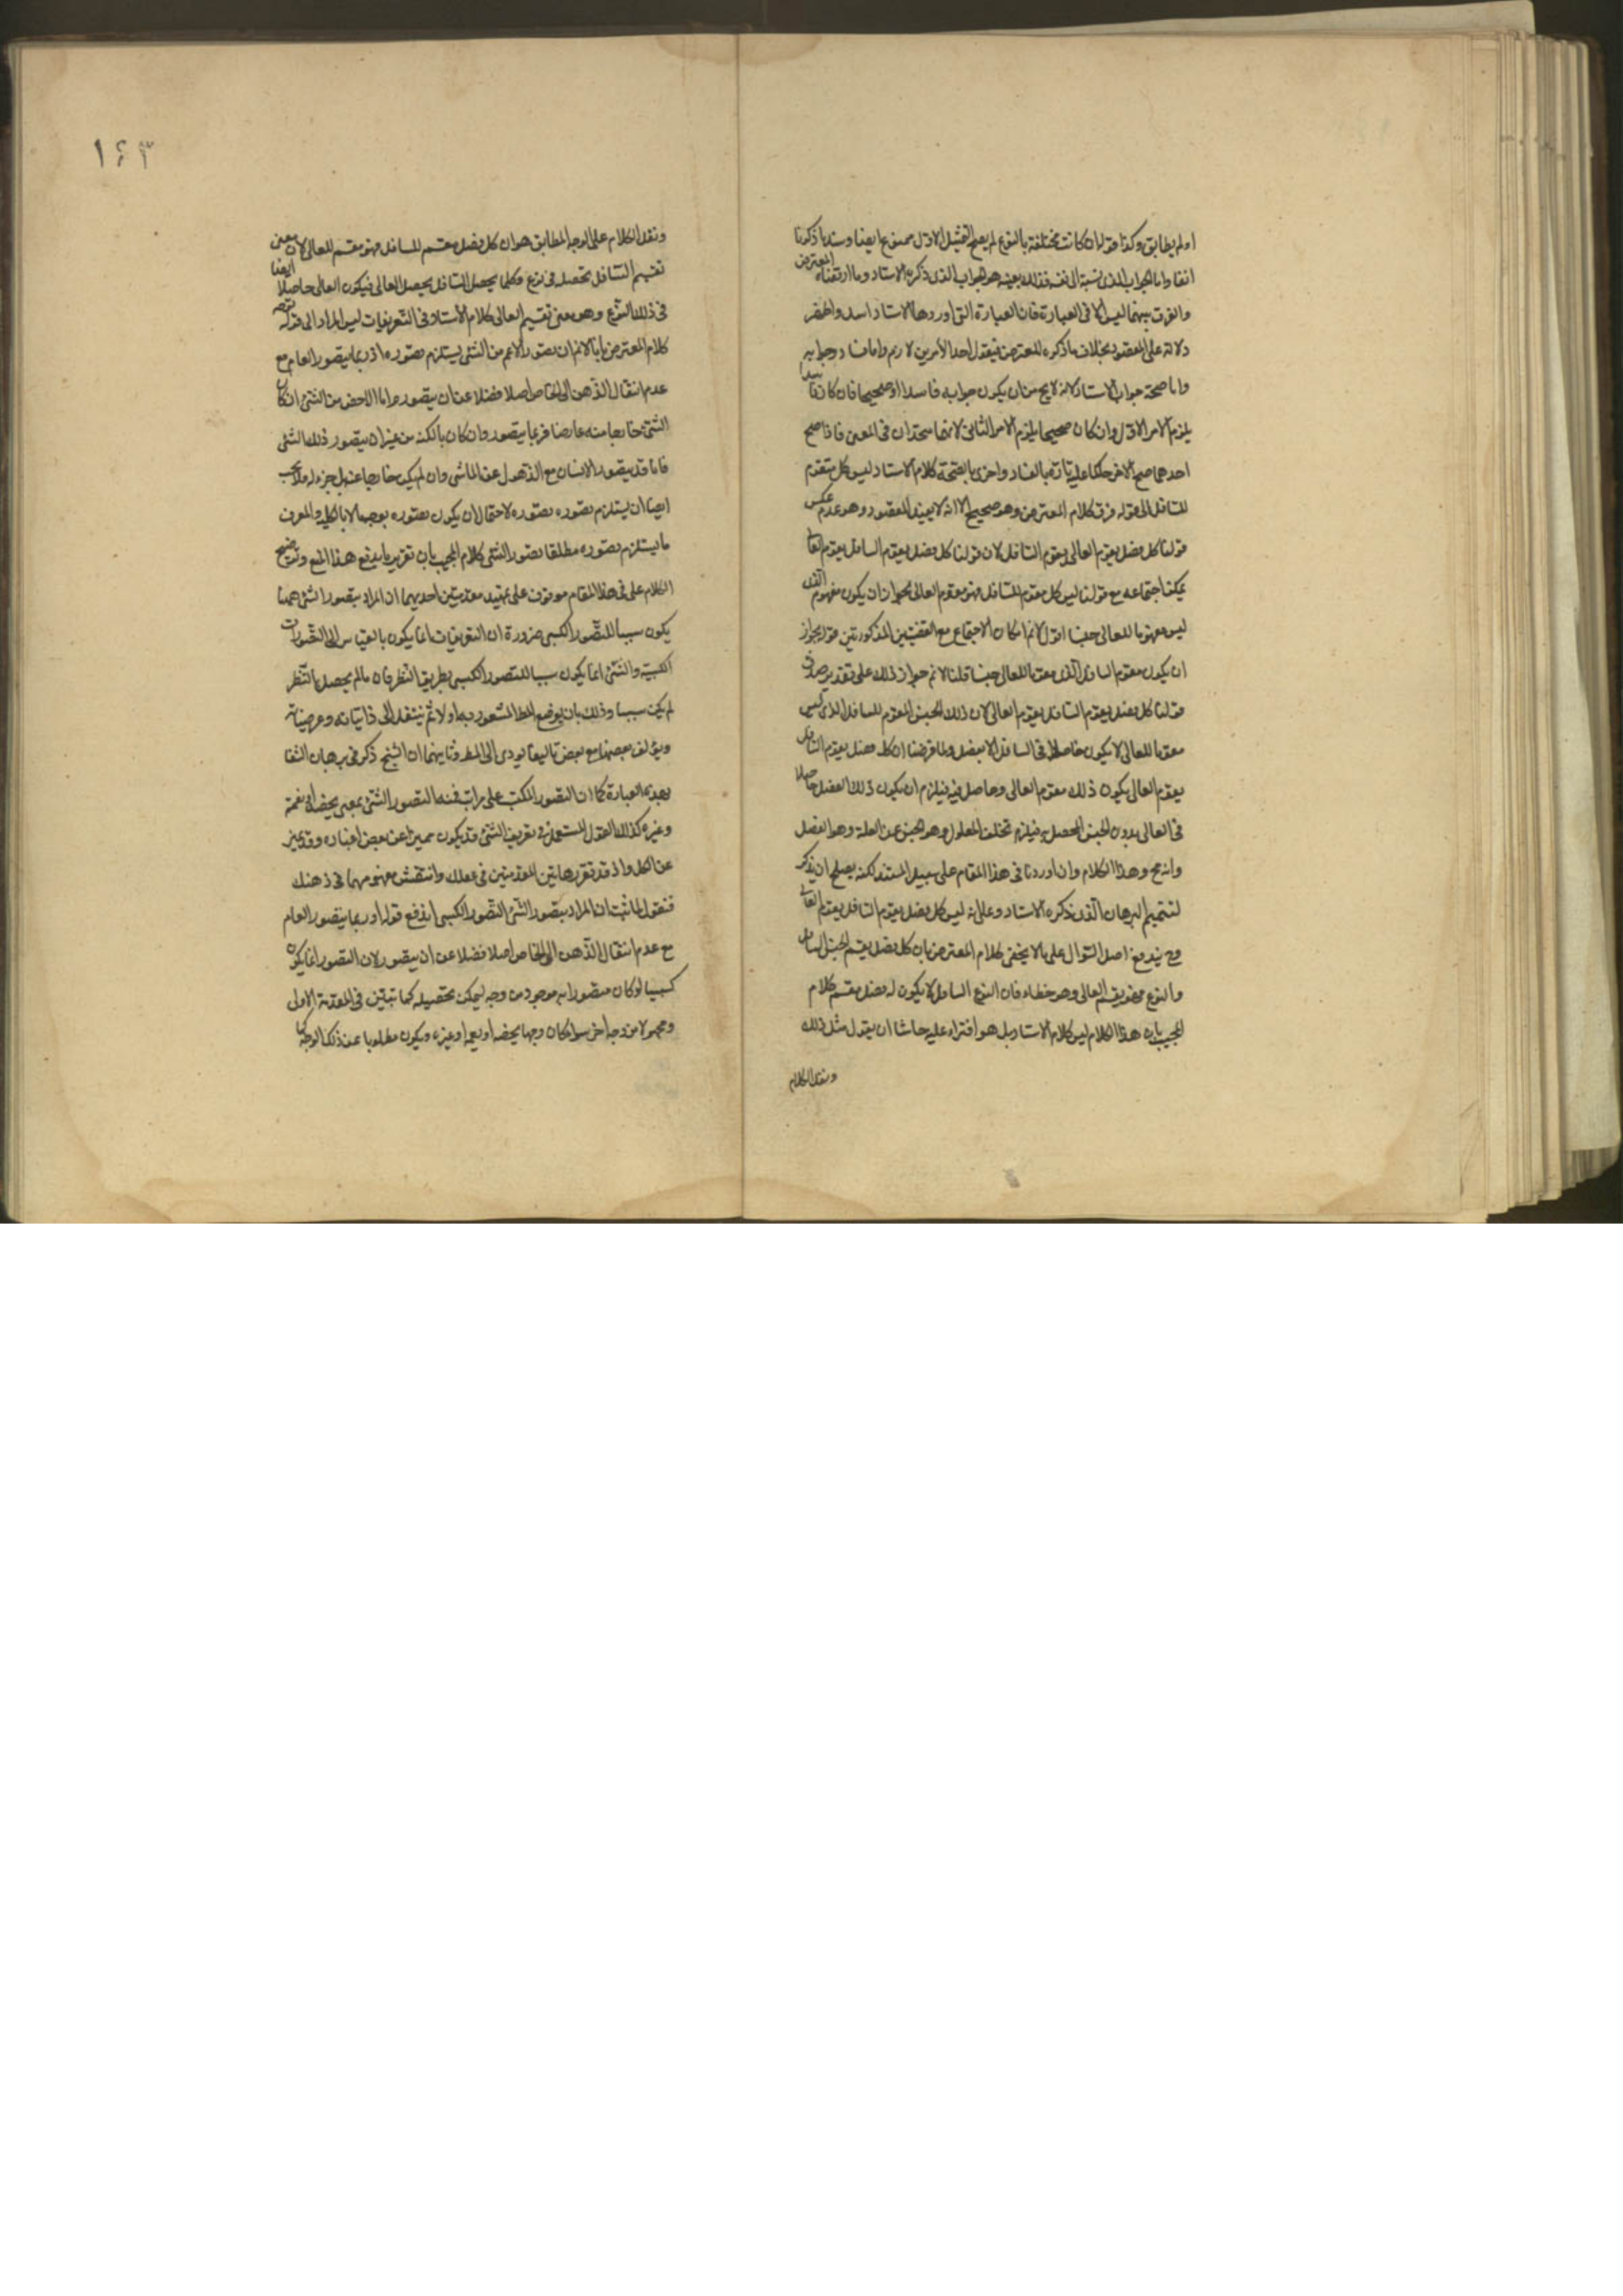 اولم يطابق وكذا قوله ان كانت مختلفة بالنوع لم يصح التمثيل الاول ممنوع ايضا وسنده ما ذكرنا
انفا واما الجواب الذى نسبه الى نفسه فذلك بعينه هو الجواب الذى ذكره الاستاد وما ارتضاه المعترض
والفرق بينهما ليس الا فى العبارة فان العبارة التى اوردها الاستاد اسد واظهر
دلالة على المقصود بخلاف ما ذكره المعترض فيقول احد الأمرين لازم واما فساد جوابه
واما صحة جواب الاستاد لانه لا يخ من ان يكون جوابه فاسدا او صحيحا فان كان فاسدا
يلزم الامر الاول وان كان صحيحا يلزم الامر الثانى لانهما متحدان فى المعنى فاذا صح
احدهما صح الاخر حكما عليه تارة بالفساد واخرى بالصحة كلام الاستاد ليس كل مقوم
للسافل الى قوله فرق كلام المعترض وهو صحيح الا انه لا يفيد المقصود وهو عدم عكس
قولنا كل فصل يقوم العالى يقوم السافل لان قولنا كل فصل يقوم السافل يقوم العالى
يمكن اجتماعه مع قولنا ليس كل مقوم للسافل فهو مقوم العالى لجواز ان يكون مفهوم الذى
ليس مقوما للعالى جنسا اقول لانم امكان الاجتماع مع القضيتين المذكورتين قوله يجواز
ان يكون مقوم السافل الذى مقوما للعالى جنسا قلنا لانم جواز ذلك على تقدير صدق
قولنا كل فصل يقوم السافل يقوم العالى لان ذلك الجنس المقوم للسافل الذى ليس
مقوما للعالى لا يكون حاصلا فى السافل الا بفصل ولما فرضنا ان كل فصل يقوم السافل
يقوم العالى يكون ذلك مقوم العالى وحاصل فيه فيلزم ان يكون ذلك الفصل حاصلا
فى العالى بدون الجنس المحصل به فيلزم تخلف المعلول وهو الجنس عن العلة وهو الفصل
وانه مح وهذا الكلام وان اوردنا فى هذا المقام على سبيل المستند لكنه يصلح ان يذكر
لتتميم البرهان الذى ذكره الاستاد وعلى انه ليس كل فصل يقوم السافل يقوم العالى
وح يندفع اصل السؤال على ما لا يخفى كلام المعترض بان كل فصل يقسم الجنس السافل
والنوع فهو يقسم العالى وهو خطاء فان النوع السافل لا يكون له فصل مقسم كلام
المجيب بان هذا الكلام ليس كلام الاستاد بل هو افتراء عليه حاشا ان يقول مثل ذلك
ونقل الكلام
١٤٣
ونقل الكلام على الوجه المطابق هو ان كل فصل مقسم للسافل فهو مقسم للعالى لان معنى
تقسيم السافل تحصله فى نوع وكلما يحصل السافل يحصل العالى فيكون العالى حاصلا ايضا
فى ذلك النوع وهو معنى تقسيم العالى كلام الأستاد فى التعريفات ليس المراد الى قوله
كلام المعترض بانا لانم ان تصور الاعم من الشئ يستلزم تصوره اذ ربما يتصور العام مع
عدم انتقال الذهن الى الخاص اصلا فضلا عن ان يتصوره واما الاخص من الشئ ان كان
الشئ خارجا منه عارضا فربما يتصور وان كان بالكنه من غير ان يتصور ذلك الشئ
فانا قد يتصور الانسان مع الذهول عن الماشى وان لم يكن خارجا عنه بل جزء له فلا يجب
ايضا ان يستلزم تصوره تصوره لاحتمال ان يكون تصوره بوجه ما لا بالكلية والمعرف
ما يستلزم تصوره مطلقا تصور الشئ كلام المجيب بان تقرير ما يندفع هذا المنع وتوضيح
الكلام على فى هذا المقام موقوف على تمهيد مقدمتين احديهما ان المراد بتصور الشئ ههنا
يكون سببا للتصور الكسبى ضرورة ان التعريفات انما يكون بالقياس الى التصورات
الكسبية والشئ انما يكون سببا للتصور الكسبى بطريق النظر فان ما لم يحصل بالنظر
لم يكن سببا وذلك بان يوضع المط المشعور به اولا ثم ينتقل الى ذاتياته وعرضياته
ويؤلف بعضها مع بعض تاليفا يودى الى المط وثانيهما ان الشيخ ذكر فى برهان الشفا
بهذه العبارة كما ان التصور المكتسب على مراتب فمنه التصور الشئ بمعنى يخصه او يعمه
وغيره كذلك القول المستعمل فى تعريف الشئ قد يكون مميزا عن بعض اغياره وقد يميز
عن الكل واذ قد تقرر هاتين المقدمتين فى عقلك وانتقش مفهومهما فى ذهنك
فنقول لما ثبت ان المراد بتصور الشئ التصور الكسبى اندفع قوله او ربما يتصور العام
مع عدم انتقال الذهن الى الخاص اصلا فضلا عن ان يتصور لان التصور انما يكون
كسبيا لو كان متصورا به موجود من وجه ليمكن تحصيله كما تبين فى المقدمة الاولى
ومجهولا من وجه اخر سواء كان وجها يخصه او يعمه او غيره ويكون مطلوبا عن ذلك الوجه